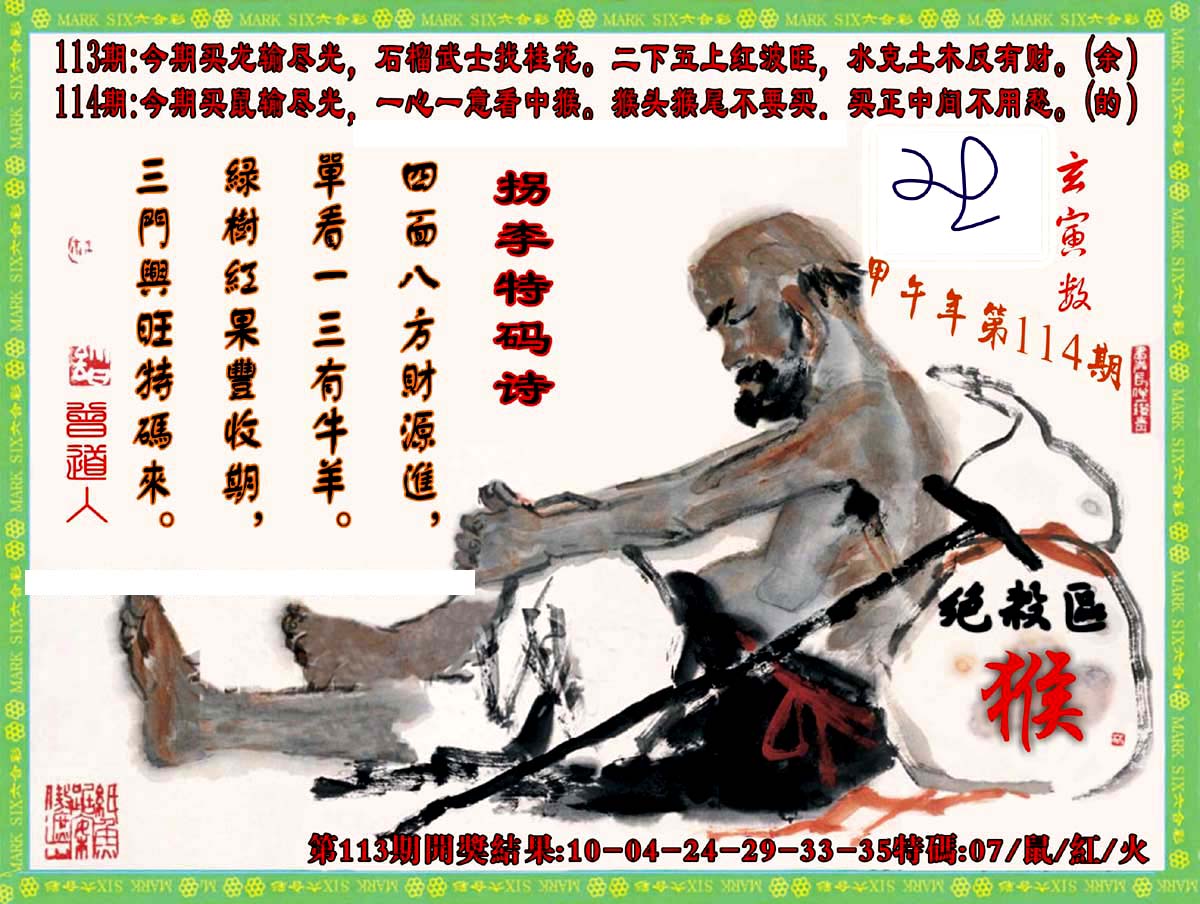 MARK SIX六合彩 MARK SIX六合彩 MARK SIX六合彩 MARK SIX六合彩 MARK SIX六合彩 MARK SIX六合彩
113期:今期买龙输尽光，石榴武士找桂花。二下五上红波旺，水克土木反有财。(余)
114期:今期买鼠输尽光，一心一意看中猴。猴头猴尾不要买，买正中间不用愁。(的)
玄寅数
甲午年第114期
拐李特码诗
四面八方財源進，
單看一三有牛羊。
綠樹紅果豐收期，
三門興旺特碼來。
曾道人
绝殺區
猴
第113期開獎結果:10-04-24-29-33-35特碼:07/鼠/紅/火